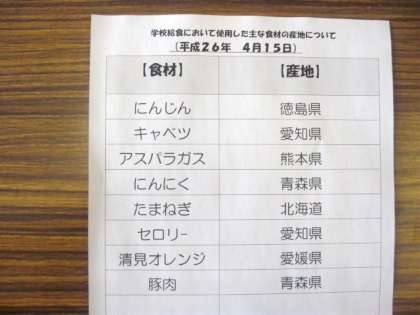 学校給食において使用した主な食材の産地について
(平成26年　4月15日)
【食材】 【産地】
にんじん 徳島県
キャベツ 愛知県
アスパラガス 熊本県
にんにく 青森県
たまねぎ 北海道
セロリー 愛知県
清見オレンジ 愛媛県
豚肉 青森県